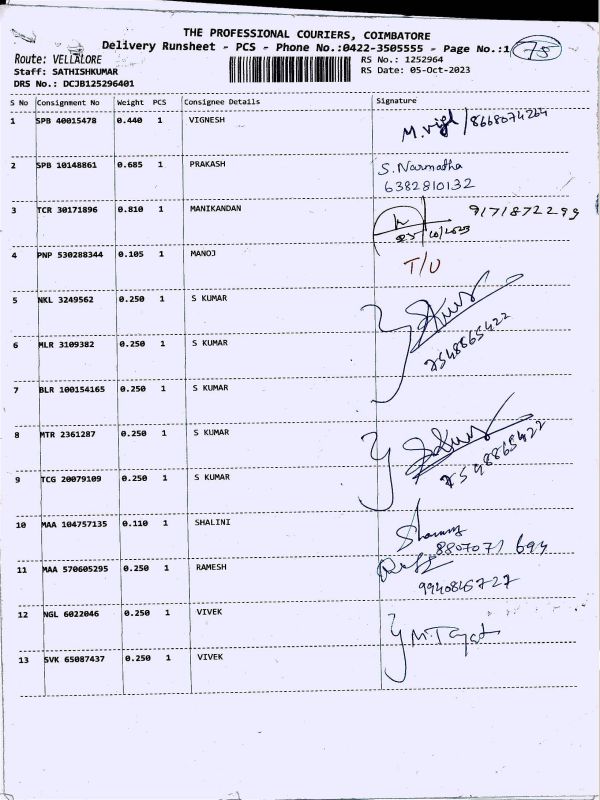 THE PROFESSIONAL COURIERS, COIMBATORE
Delivery Runsheet - PCS - Phone No.:0422-3505555 - Page No.:1 75
Route: VELLALORE
RS No.: 1252964
Staff: SATHISHKUMAR
RS Date: 05-Oct-2023
DRS No.: DCJB125296401
S No Consignment No Weight PCS Consignee Details Signature
1 SPB 40015478 0.440 1 VIGNESH 8668074264
2 SPB 10148861 0.685 1 PRAKASH S. Narmatha
6382810132
3 TCR 30171896 0.810 1 MANIKANDAN 9171872299
05/10/2023
4 PNP 530288344 0.105 1 MANOJ T/U
5 NKL 3249562 0.250 1 S KUMAR
6 MLR 3109382 0.250 1 S KUMAR 7548865422
7 BLR 100154165 0.250 1 S KUMAR
8 MTR 2361287 0.250 1 S KUMAR
9 TCG 20079109 0.250 1 S KUMAR 7548865422
10 MAA 104757135 0.110 1 SHALINI
8807071694
11 MAA 570605295 0.250 1 RAMESH
9940845727
12 NGL 6022046 0.250 1 VIVEK
13 SVK 65087437 0.250 1 VIVEK